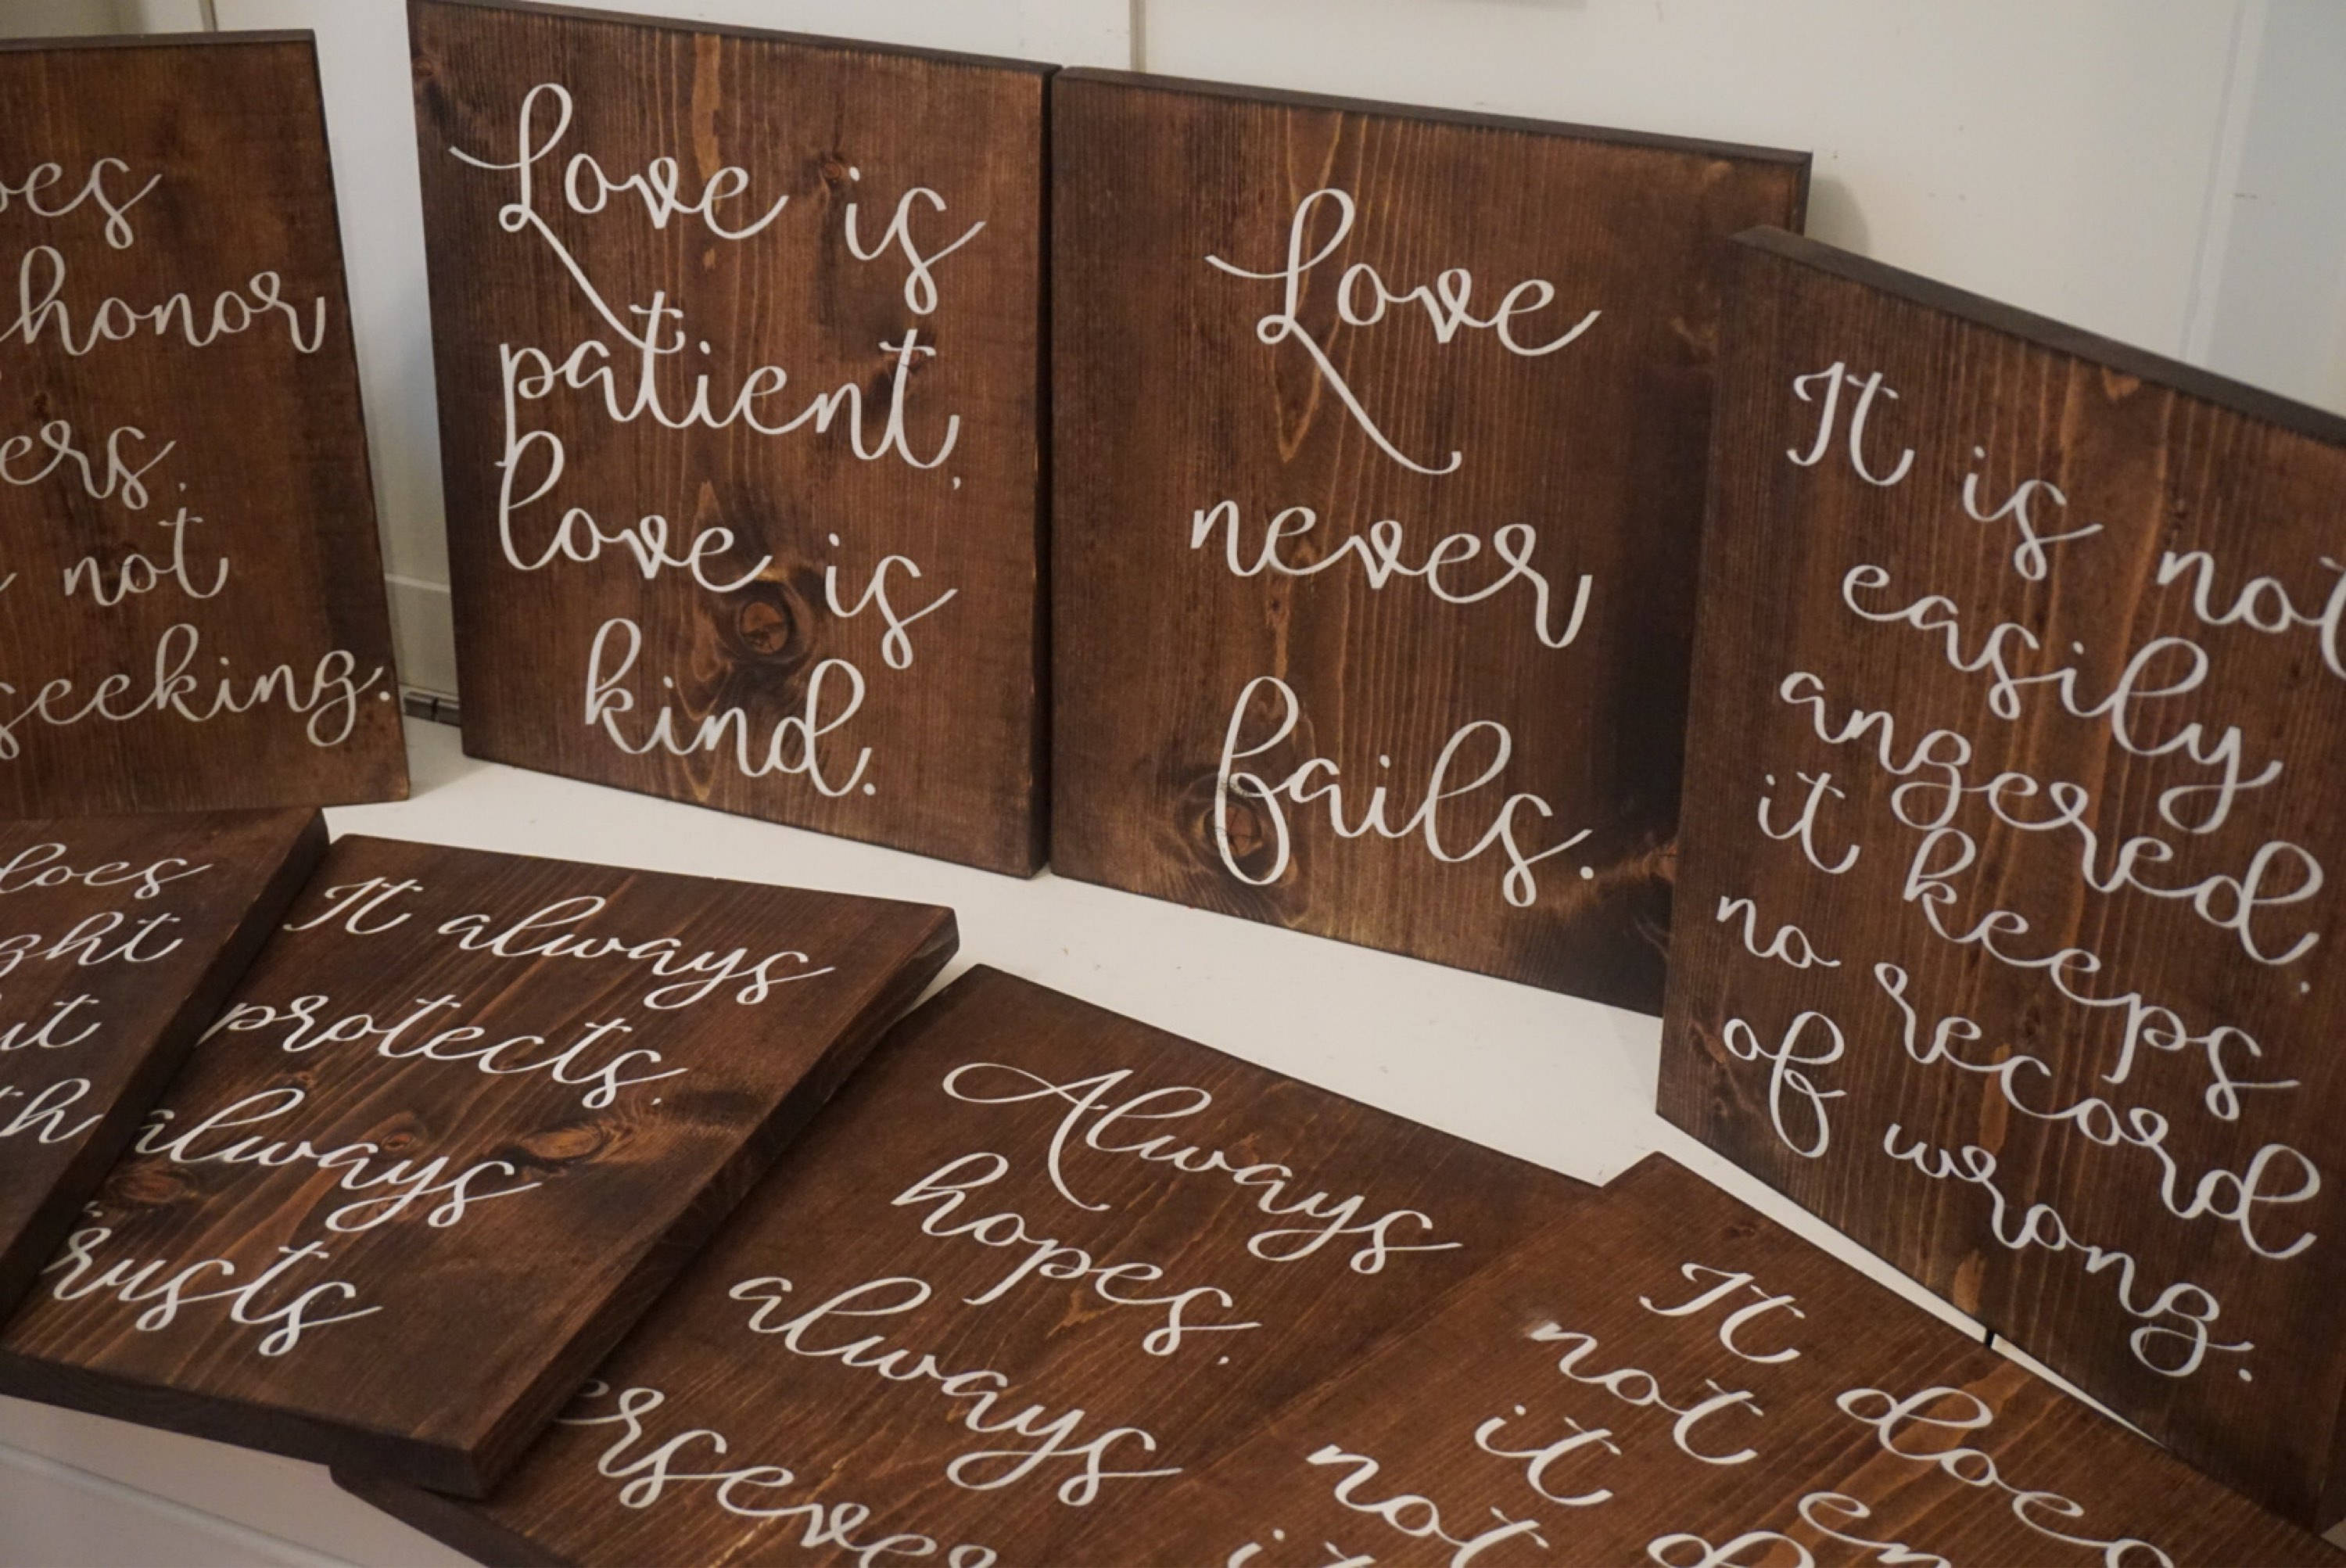 honor
not
seeking.
Love is
patient,
love is
kind.
Love
never
fails.
It is not
easily
angered.
it keeps
no record
of wrong.
does
It always
protects.
always
Always
hopes.
always
It does
not
it
not